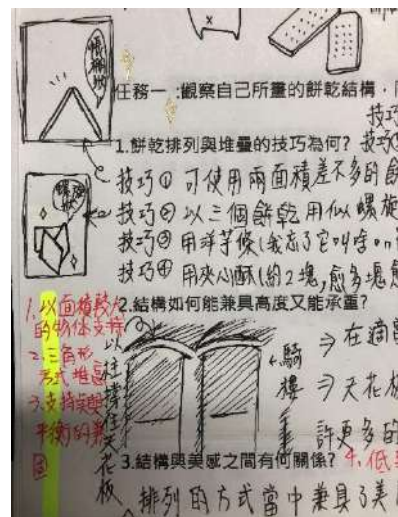 帳棚狀
任務一：觀察自己所畫的餅乾結構，
技巧
1.餅乾排列與堆疊的技巧為何？技巧
技巧① 可使用兩面積差不多的餅
螺旋狀
技巧② 以三個餅乾用似螺旋
技巧③ 用洋芋條(我忘了它叫啥
技巧④ 用夾心酥(約2塊,愈多塊愈
2.結構如何能兼具高度又能承重？
1.以面積較大的物体支撐
2.三角形
方式堆疊
3.支持與
平衡的兼
以柱撐住天花板
騎樓
⇒ 在適當
⇒ 天花板
許更多的
3.結構與美感之間有何關係？ 4.低
排列的方式當中兼具了美